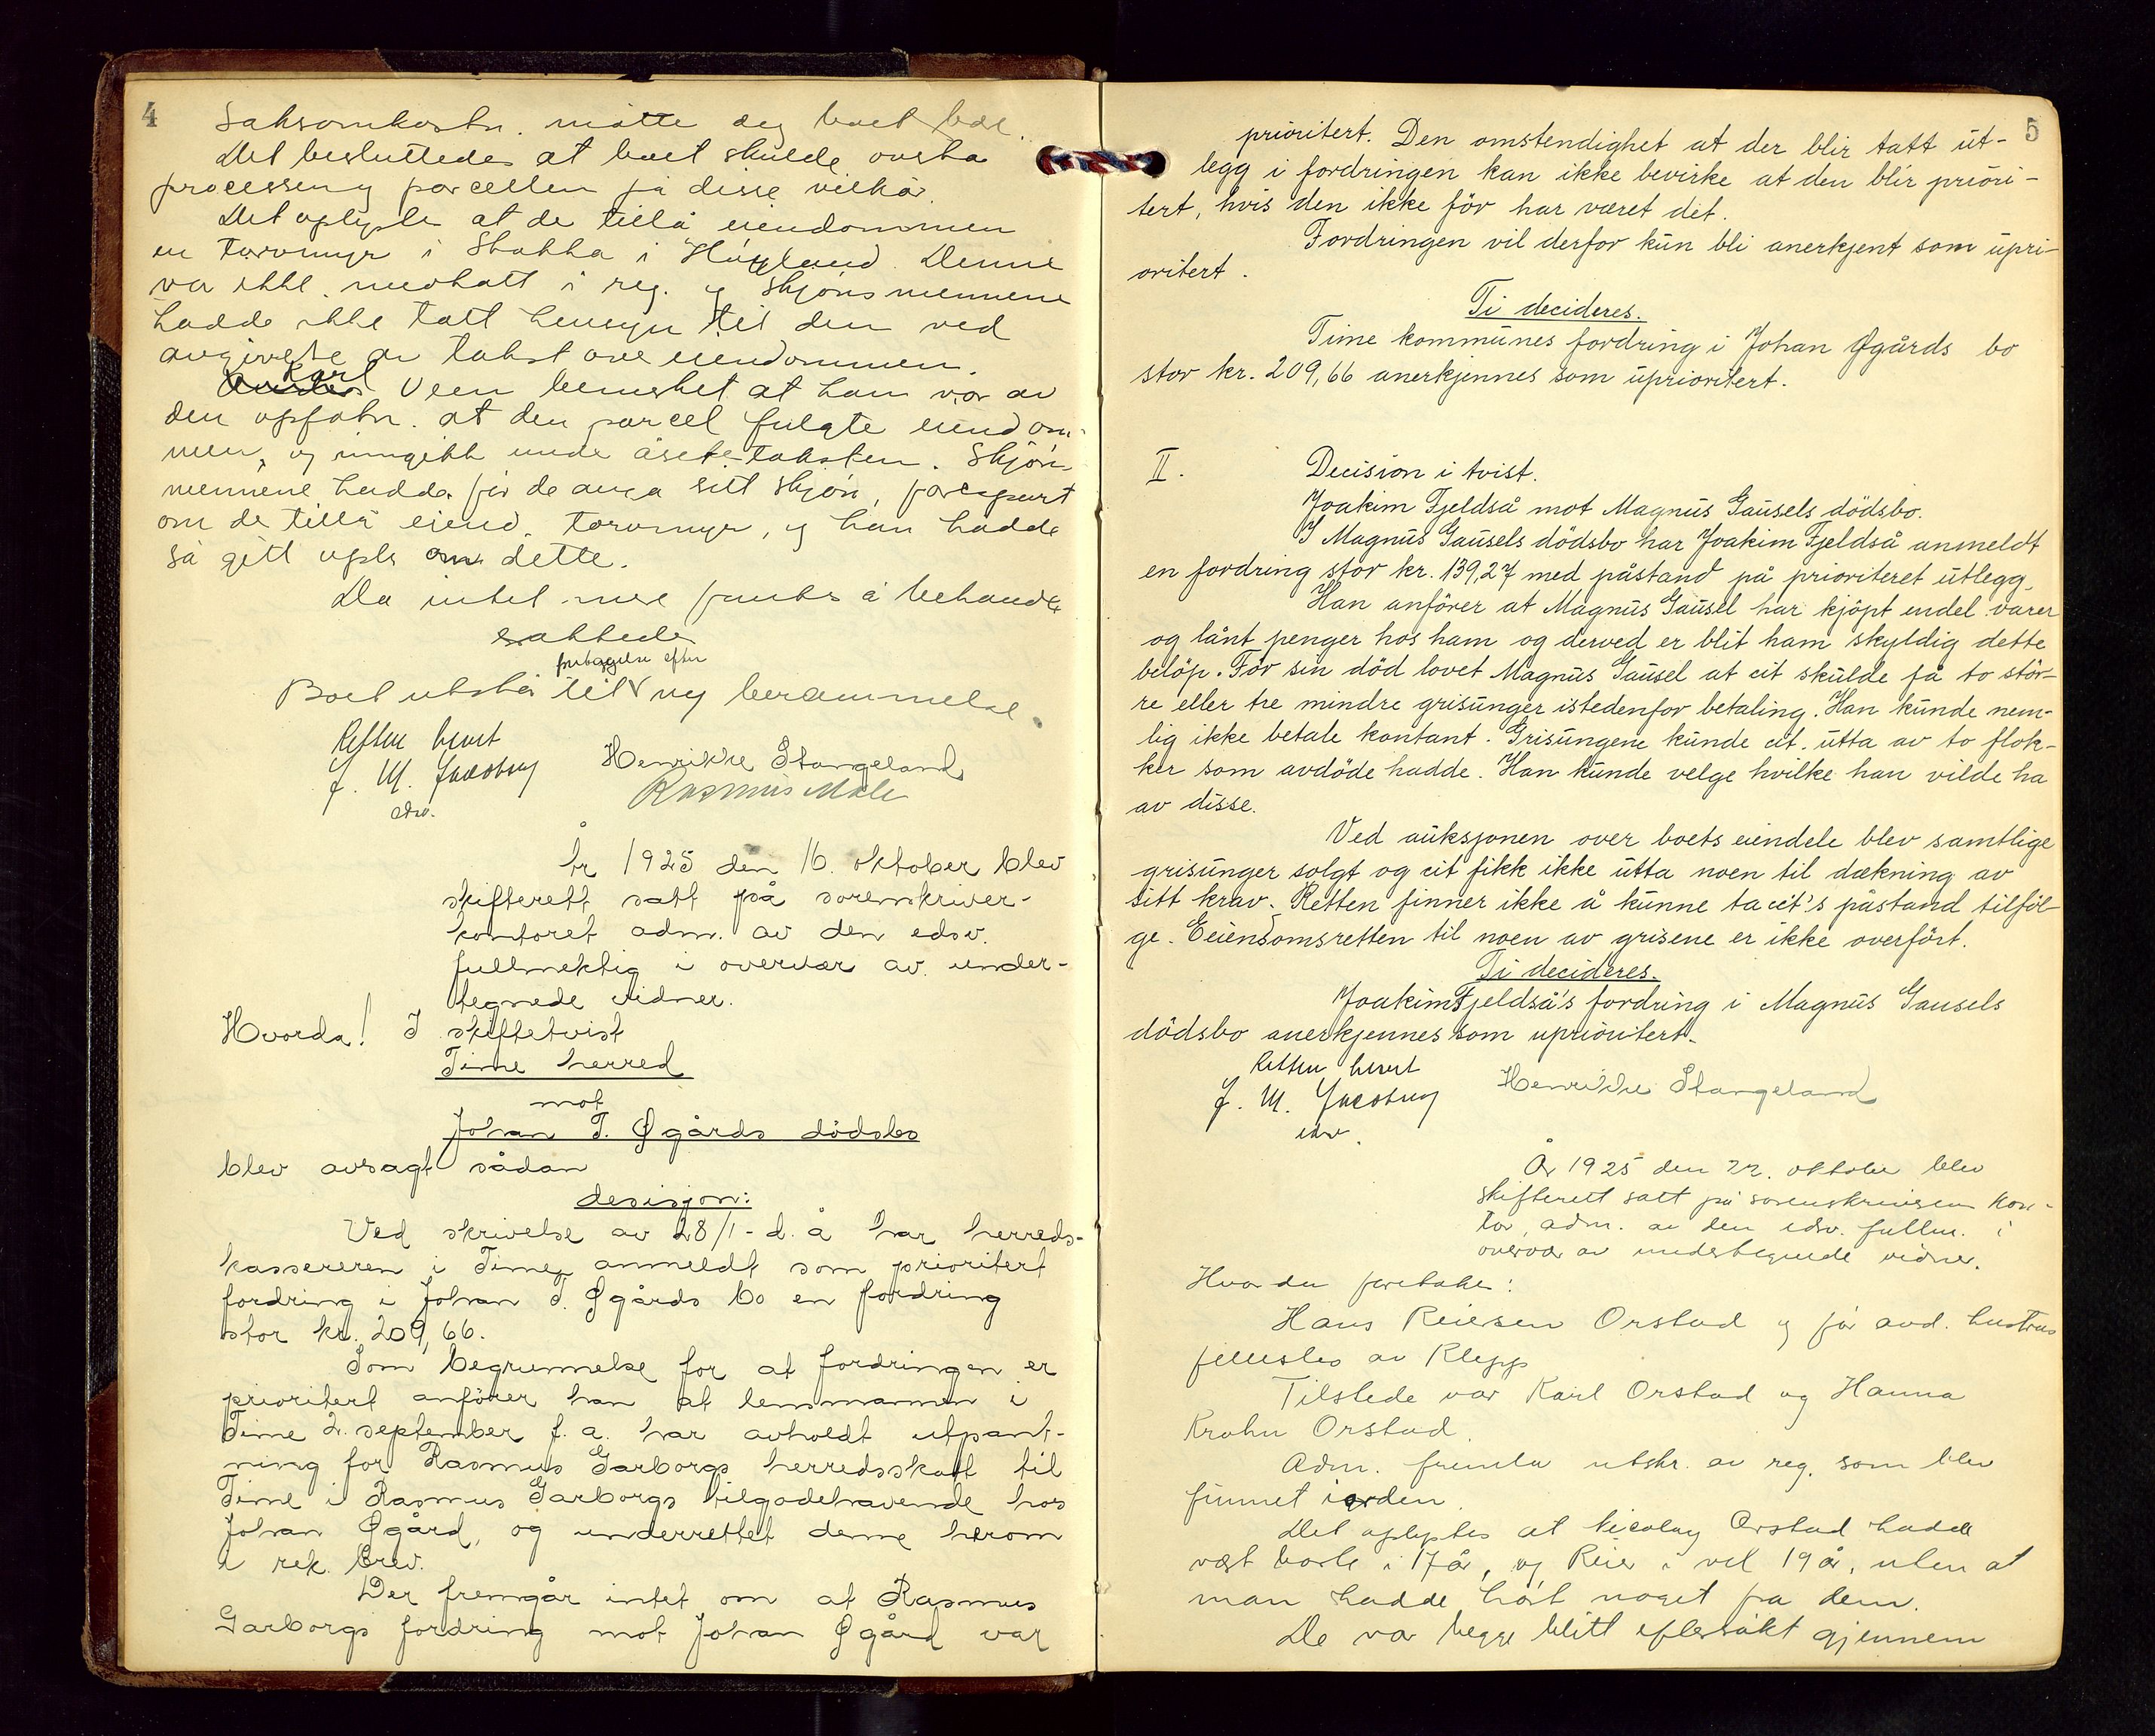 4
Saksomkostn. måtte deg boet bære.
Det besluttedes at boet skulde overta
processen og parcellen på disse vilkår.
Det oplystes at de tillå eiendommen
en torvmyr i Stokka i Høyland. Denne
var ikke medtatt i reg. og skjønsmennene
hadde ikke tatt hensyn til den ved
avgivelse av takst over eiendommen.
Karl Veen bemerket at han var av
den opfatn. at den parcel fulgte eiendom-
men, og inngikk under åsetetaksten. Skjøns-
mennene hadde før de avga sitt skjøn, forespurt
om de tillå eiend. torvmyr, og han hadde
så gitt opl. om dette.
Da intet mere fantes å behandle
sluttedes
Boet utstår til foretagelse efter ny berammelse.
Retten hevet
J. M. Jacobsen
edsv.
Henrikke Stangeland
Rasmus Mæle
År 1925 den 16. oktober blev
skifterett satt på sorenskriver-
kontoret adm. av den edsv.
fullmektig i overvær av under-
tegnede vidner.
Hvorda! I skiftetvist
Time herred
mot
Johan T. Øgårds dødsbo
blev avsagt sådan
desisjon:
Ved skrivelse av 28/1 - d. å har herreds-
kassereren i Time anmeldt som prioritert
fordring i Johan T. Øgårds bo en fordring
stor kr. 209,66.
Som begrunnelse for at fordringen er
prioritert anfører han at lensmannen i
Time 2. september f. a. har avholdt utpant-
ning for Rasmus Garborgs herredsskatt til
Time i Rasmus Garborgs tilgodehavende hos
Johan Øgård, og underrettet denne herom
i rek. brev.
Der fremgår intet om at Rasmus
Garborgs fordring mot Johan Øgård var
5
prioritert. Den omstendighet at der blir tatt ut-
legg i fordringen kan ikke bevirke at den blir priori-
tert, hvis den ikke för har været det.
Fordringen vil derfor kun bli anerkjent som upri-
oritert.
Ti decideres.
Time kommunes fordring i Johan Øgårds bo
stor kr. 209,66 anerkjennes som uprioritert.
II. Decision i tvist.
Joakim Fjeldså mot Magnus Gausels dödsbo.
I Magnus Gausels dödsbo har Joakim Fjeldså anmeldt
en fordring stor kr. 139,27 med påstand på prioriteret utlegg.
Han anförer at Magnus Gausel har kjöpt endel varer
og lånt penger hos ham og derved er blit ham skyldig dette
belöp. För sin död lovet Magnus Gausel at cit skulde få to stör-
re eller tre mindre grisunger istedenfor betaling. Han kunde nem-
lig ikke betale kontant. Grisungene kunde cit. utta av to flok-
ker som avdöde hadde. Han kunde velge hvilke han vilde ha
av disse.
Ved auksjonen over boets eiendele blev samtlige
grisunger solgt og cit fikk ikke utta noen til dækning av
sitt krav. Retten finner ikke å kunne ta cit's påstand tilföl-
ge. Eeiendomsretten til noen av grisene er ikke overfört.
Ti decideres.
Joakim Fjeldså's fordring i Magnus Gausels
dödsbo anerkjennes som uprioritert.
Retten hevet
J. M. Jacobsen
edsv.
Henrikke Stangeland
År 1925 den 22. oktober blev
skifterett satt på sorenskriveren kon-
tor, adm. av den edsv. fullm. i
overvær av undertegnede vidner.
Hvorda foretokes:
Hans Reiersen Orstad og før avd. hustrus
fellesbo av Klepp
Tilstede var Karl Orstad og Hanna
Krohn Orstad.
Adm. fremla utskr. av reg. som blev
funnet iorden.
Det oplystes at Nicolay Orstad hadde
vært borte i 17 år, og Reier i vel 19 år, uten at
man hadde hørt noget fra dem.
De var begge blitt eftersøkt gjennem